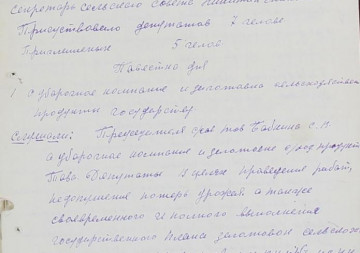 секретарь сельского совета
Присутствовало депутатов 7 человек
Приглашенные 5 челов
Повестка дня
1 О уборочной компании и заготовки сельскохозяйствен
продукты государству
Слушали: Председателя с/сов тов Бабкина с. п.
о уборочной компании и заготовке с/хоз продуктов
Това Депутаты В целях проведения работ,
недопущения потерь урожая а также
своевременного и полного выполнения
государственного плана заготовок сельскохо